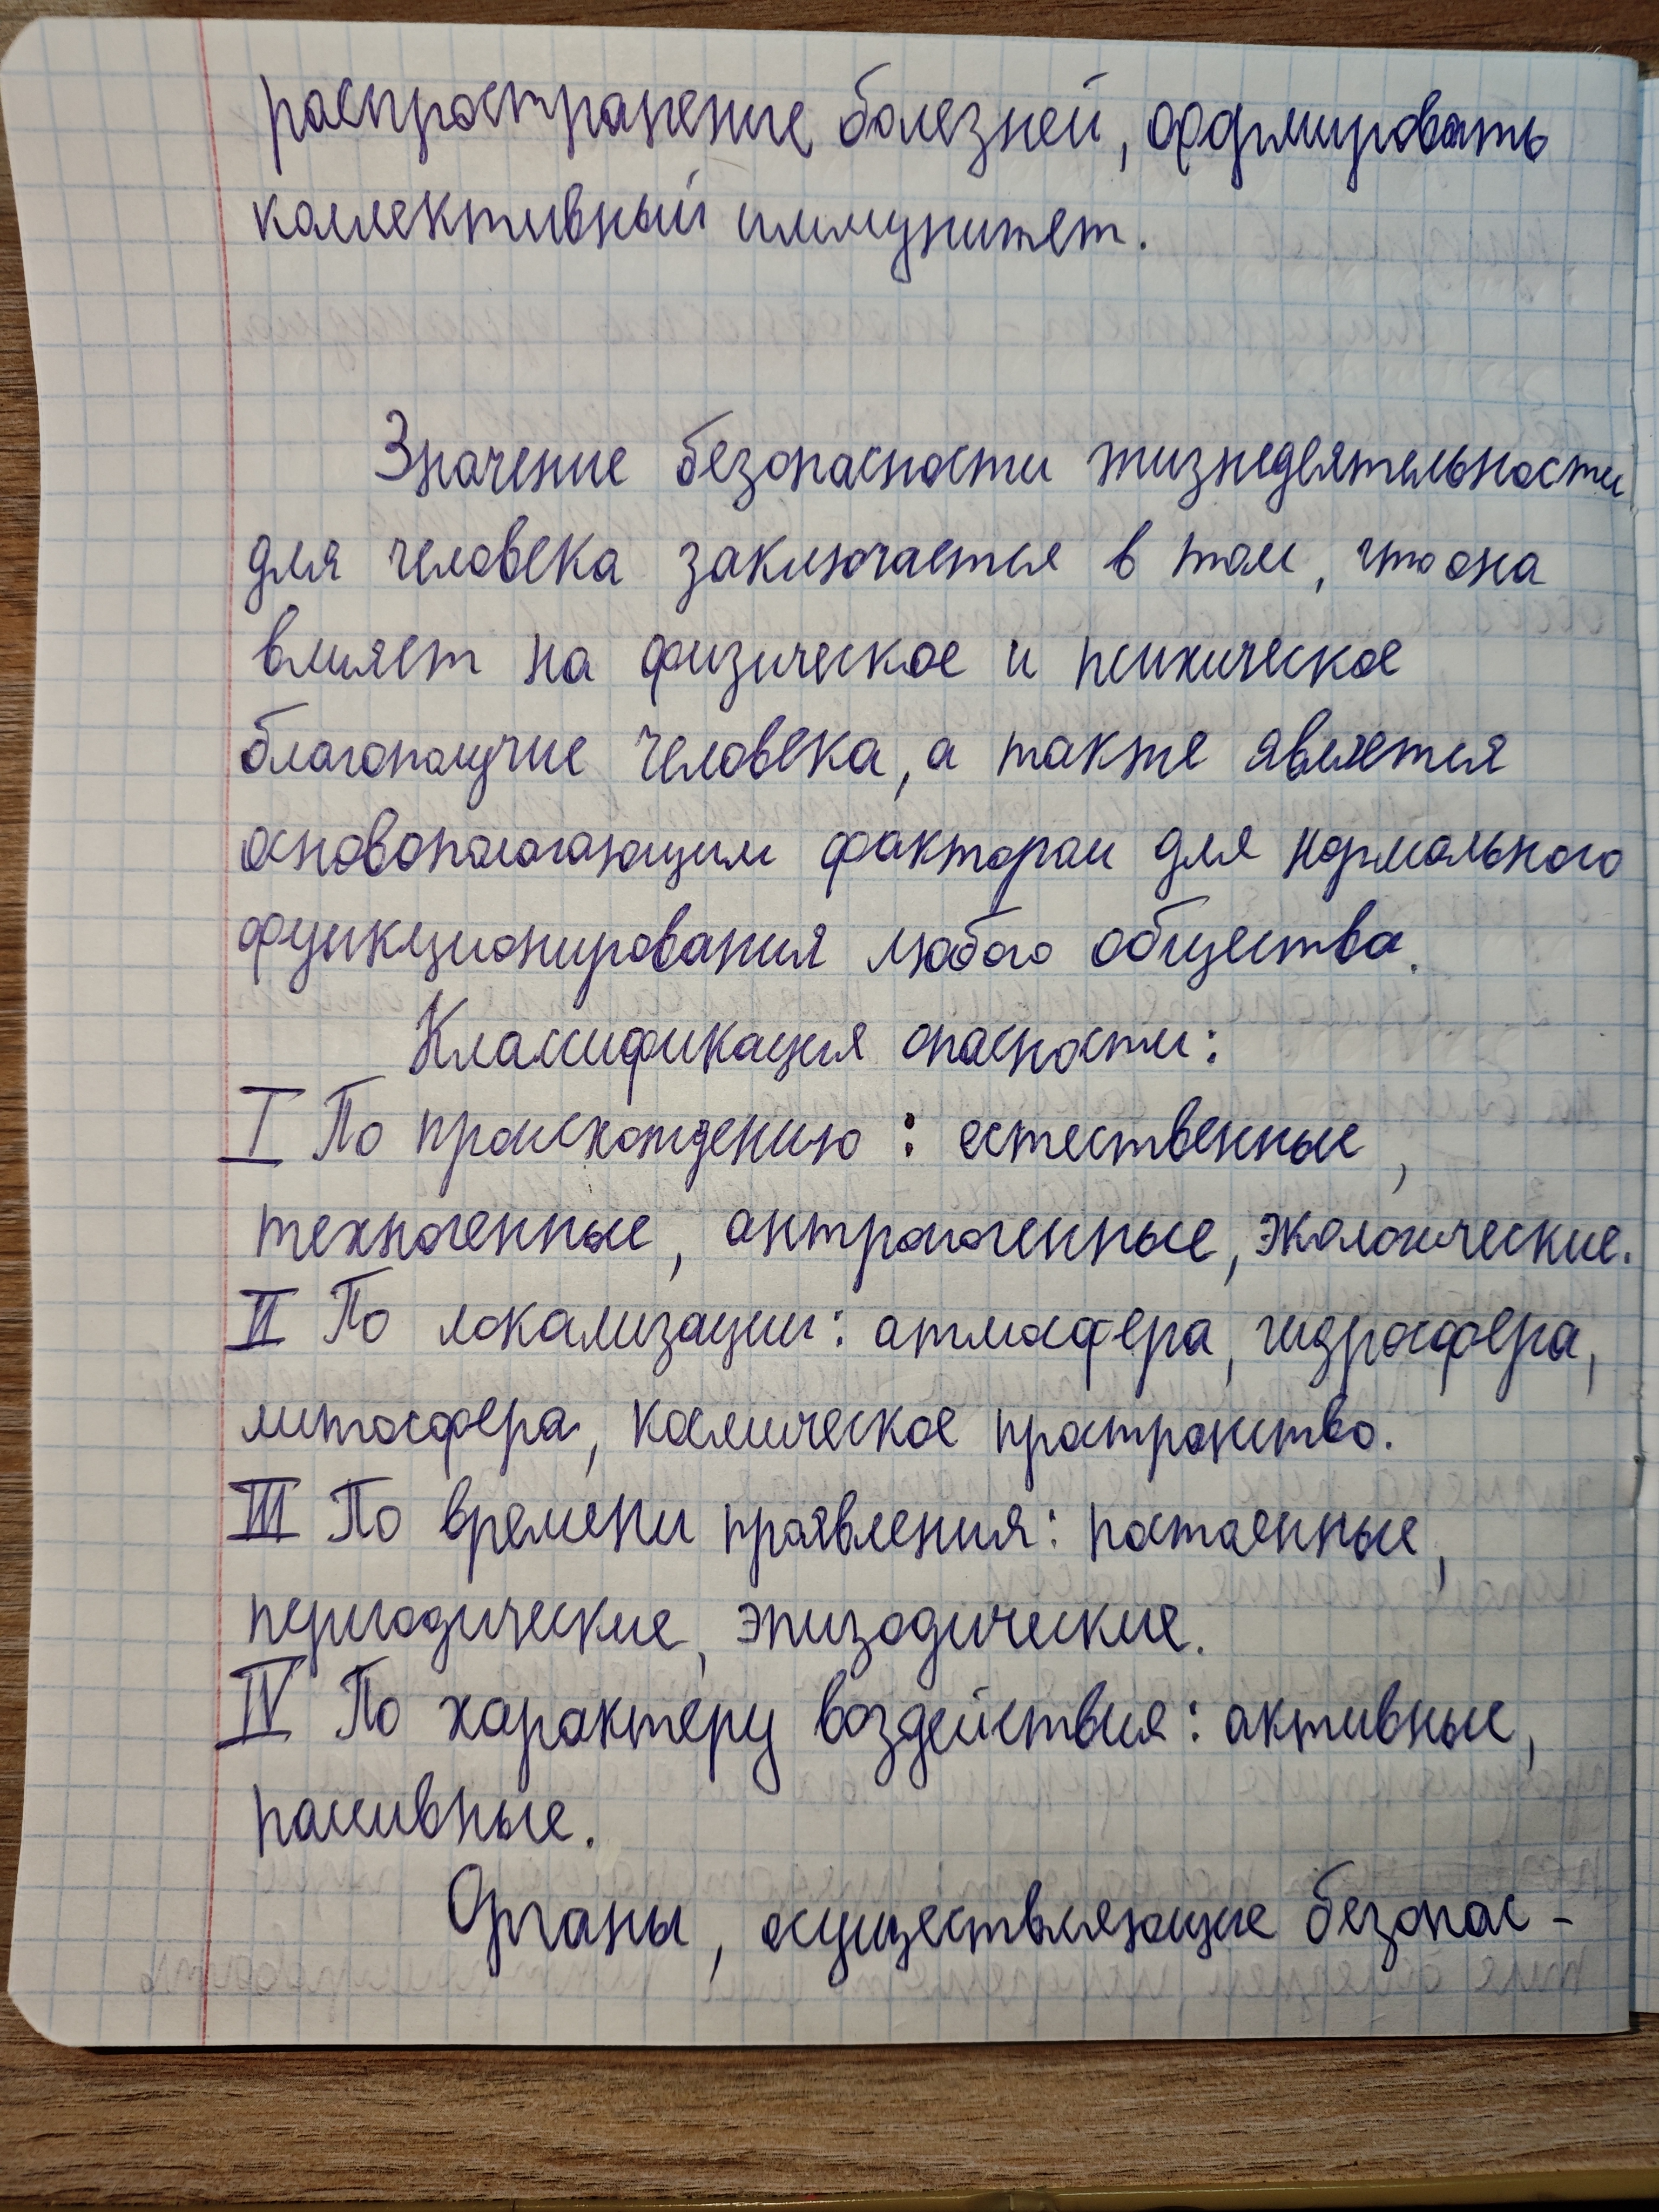 распространение болезней, сформировать
коллективный иммунитет.
Значение безопасности жизнедеятельности
для человека заключается в том, что она
влияет на физическое и психическое
благополучие человека, а также является
основополагающим фактором для нормального
функционирования любого общества.
Классификация опасности:
I По происхождению: естественные,
техногенные, антропогенные, экологические.
II По локализации: атмосфера, гидросфера,
литосфера, космическое пространство.
III По времени проявления: постоянные,
периодические, эпизодические.
IV По характеру воздействия: активные,
пассивные.
Органы, осуществляющие безопас-